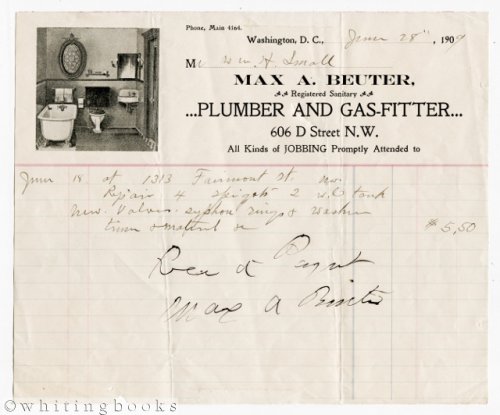 Phone, Main 4164.
Washington, D. C., June 28", 1909
M Wm H. Small
MAX A. BEUTER,
Registered Sanitary
...PLUMBER AND GAS-FITTER...
606 D Street N.W.
All Kinds of JOBBING Promptly Attended to
June 18 at 1313 Fairmont St. Nw.
Repair 4 spigots 2 w.c. tank
new Valves syphon rings & washers
time & material $5,50
Rec'd Paymt
Max A Beuter
©whitingbooks